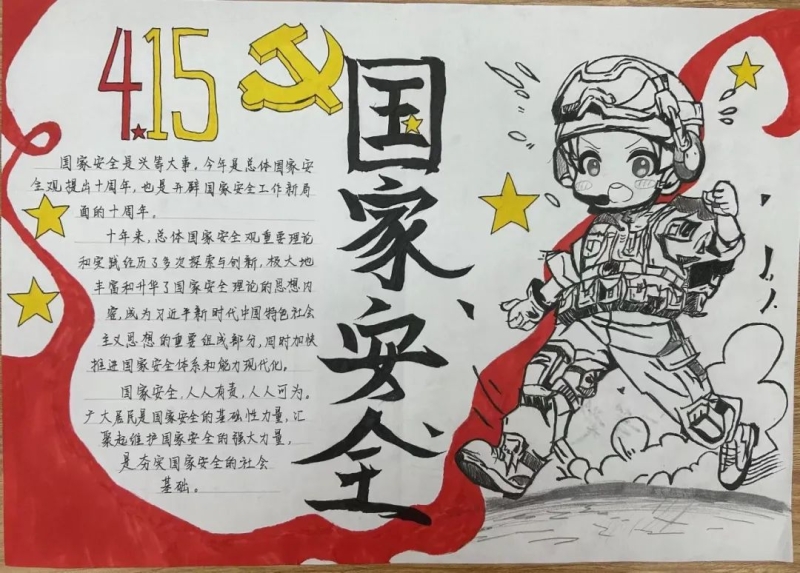 4.15
国家安全
国家安全是头等大事，今年是总体国家安
全观提出十周年，也是开辟国家安全工作新局
面的十周年。
十年来，总体国家安全观重要理论
和实践经历了多次探索与创新，极大地
丰富和升华了国家安全理论的思想内
容，成为习近平新时代中国特色社会
主义思想的重要组成部分，同时加快
推进国家安全体系和能力现代化。
国家安全，人人有责，人人可为。
广大居民是国家安全的基础性力量，汇
聚起维护国家安全的强大力量，
是夯实国家安全的社会
基础。